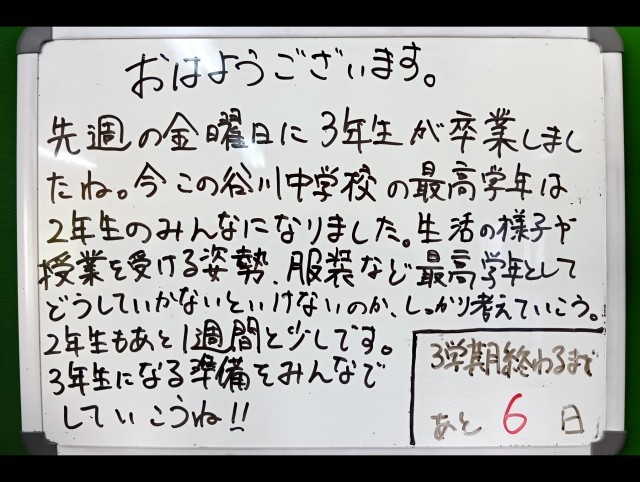 おはようございます。
先週の金曜日に3年生が卒業しまし
たね。今この谷川中学校の最高学年は
2年生のみんなになりました。生活の様子や
授業を受ける姿勢、服装など最高学年として
どうしていかないといけないのか、しっかり考えていこう。
2年生もあと1週間と少しです。
3年生になる準備をみんなで
していこうね!!
3学期終わるまで
あと 6 日